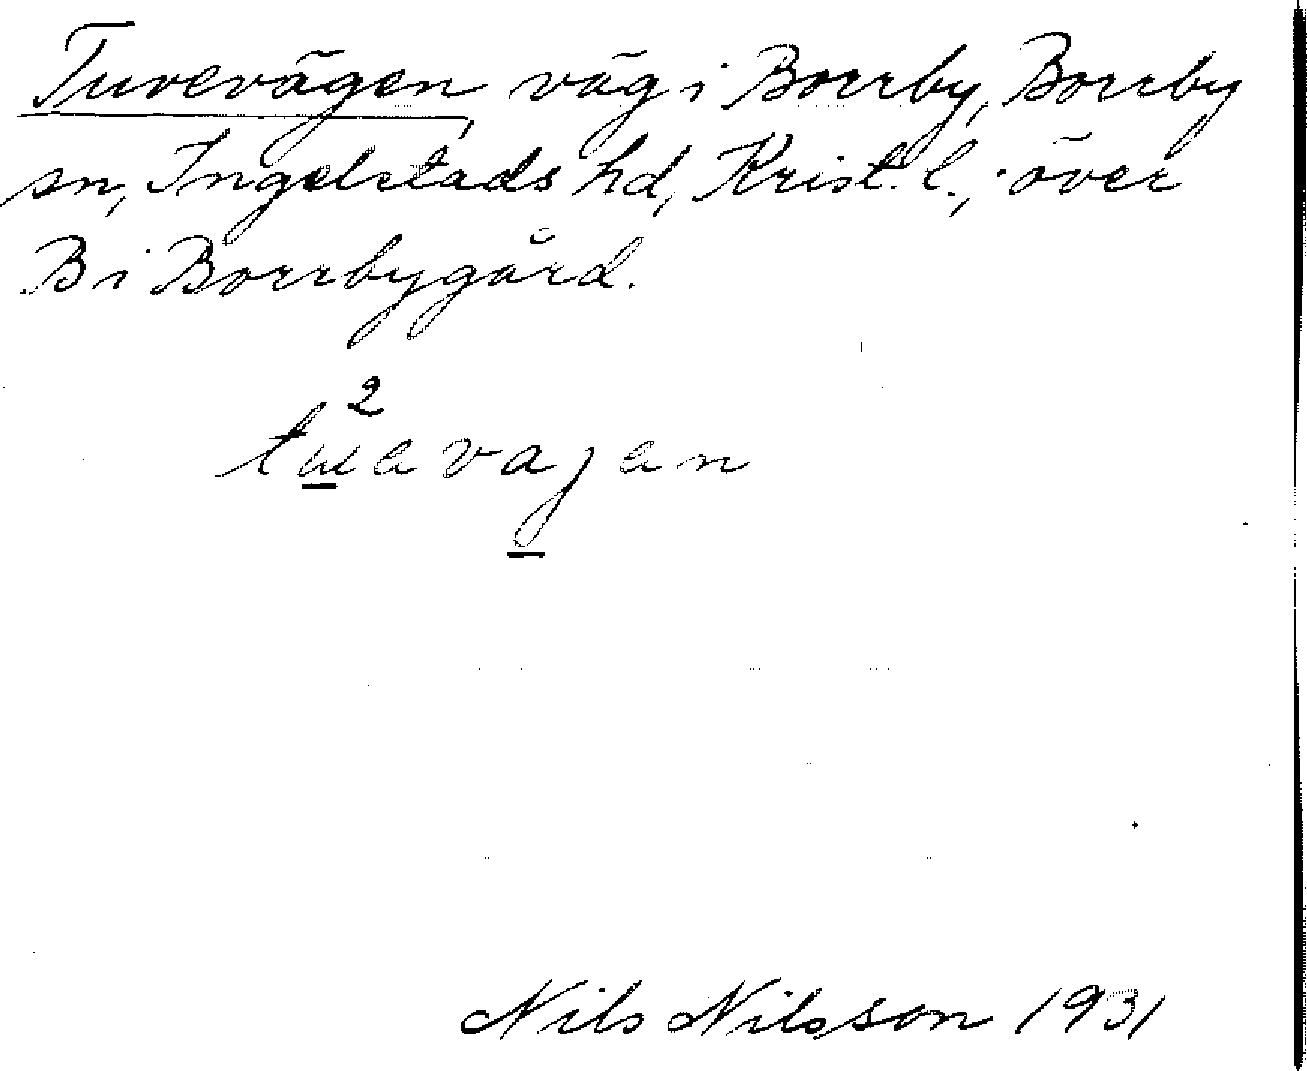 Tuvevägen, väg i Borrby, Borrby
sn, Ingelstads hd, Krist. l., över
B i Borrbygård.
2
Nils Nilsson 1931